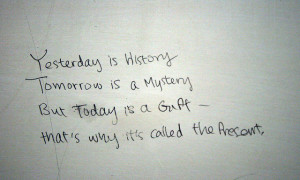 Yesterday is History
Tomorrow is a Mystery
But Today is a Gift –
that's why it's called the Present.